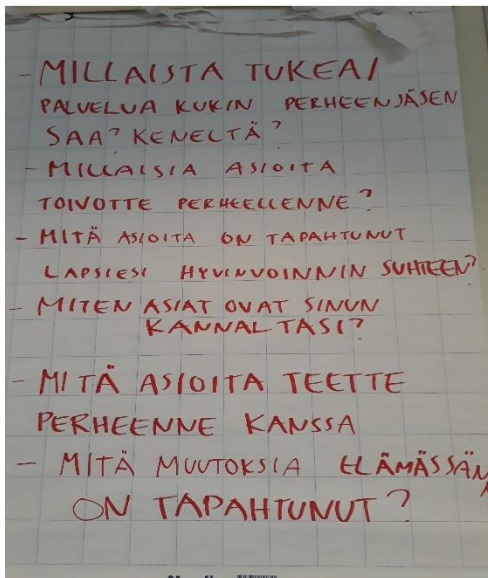 - MILLAISTA TUKEA/
PALVELUA KUKIN PERHEENJÄSEN
SAA? KENELTÄ?
- MILLAISIA ASIOITA
TOIVOTTE PERHEELLENNE?
- MITÄ ASIOITA ON TAPAHTUNUT
LAPSIESI HYVINVOINNIN SUHTEEN?
- MITEN ASIAT OVAT SINUN
KANNALTASI?
- MITÄ ASIOITA TEETTE
PERHEENNE KANSSA
- MITÄ MUUTOKSIA
ON TAPAHTUNUT?